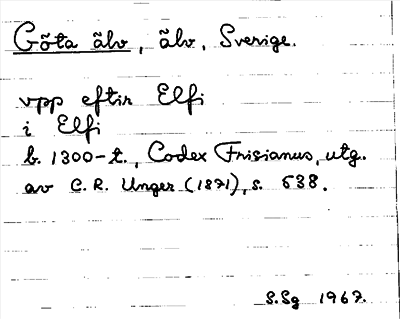 Göta älv, älv, Sverige.
vpp eftir Elfi
i Elfi
b. 1300-t., Codex Frisianus, utg.
av C. R. Unger (1871), s. 538.
S.Sg 1967.